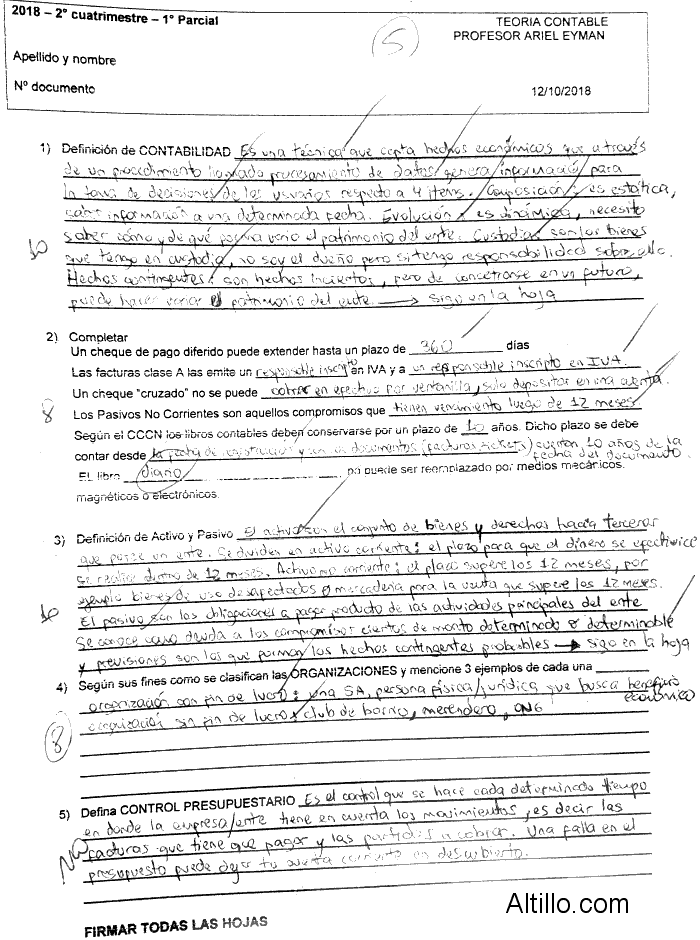 2018 – 2° cuatrimestre – 1° Parcial
TEORIA CONTABLE
PROFESOR ARIEL EYMAN
5
Apellido y nombre
Nº documento
12/10/2018
1) Definición de CONTABILIDAD Es una técnica que capta hechos económicos que a través
de un procedimiento llamado procesamiento de datos genera información para
la toma de decisiones de los usuarios respecto a 4 items. Composición: es estática,
información a una determinada fecha. Evolución: es dinámica, necesito
saber cómo y de qué forma varió el patrimonio del ente. Custodia: son los bienes
que tengo en custodia, no soy el dueño pero si tengo responsabilidad sobre ello.
10
Hechos contingentes: son hechos inciertos, pero de concretarse en un futuro,
puede hacer variar el patrimonio del ente. → sigo en la hoja
2) Completar
Un cheque de pago diferido puede extender hasta un plazo de 360 días
Las facturas clase A las emite un responsable inscripto en IVA y a un responsable inscripto en IVA.
Un cheque "cruzado" no se puede cobrar en efectivo por ventanilla, solo depositar en una cuenta.
8
Los Pasivos No Corrientes son aquellos compromisos que tienen vencimiento luego de 12 meses.
Según el CCCN los libros contables deben conservarse por un plazo de 10 años. Dicho plazo se debe
contar desde la fecha de registración y son documentos (facturas, tickets) cuentan 10 años de la
fecha del documento.
EL libro diario no puede ser reemplazado por medios mecánicos.
magnéticos o electrónicos.
3) Definición de Activo y Pasivo El activo son el conjunto de bienes y derechos hacia terceros
que posee un ente. Se dividen en activo corriente: el plazo para que el dinero se efectivice
se realice dentro de 12 meses. Activo no corriente: el plazo supere los 12 meses, por
ejemplo bienes de uso desafectados o mercadería para la venta que supere los 12 meses.
10
El pasivo son las obligaciones a pagar producto de las actividades principales del ente
Se conoce como deuda a los compromisos ciertos de monto determinado o determinable
y previsiones son los que forman los hechos contingentes probables → sigo en la hoja
4) Según sus fines como se clasifican las ORGANIZACIONES y mencione 3 ejemplos de cada una
organización con fin de lucro: una SA, persona física/jurídica que busca beneficio
económico
8
organización sin fin de lucro: club de barrio, merendero, ONG
5) Defina CONTROL PRESUPUESTARIO Es el control que se hace cada determinado tiempo
en donde la empresa/ente tiene en cuenta los movimientos, es decir las
NO
facturas que tiene que pagar y las partidas a cobrar. Una falla en el
presupuesto puede dejar tu cuenta corriente en descubierto.
Altillo.com
FIRMAR TODAS LAS HOJAS